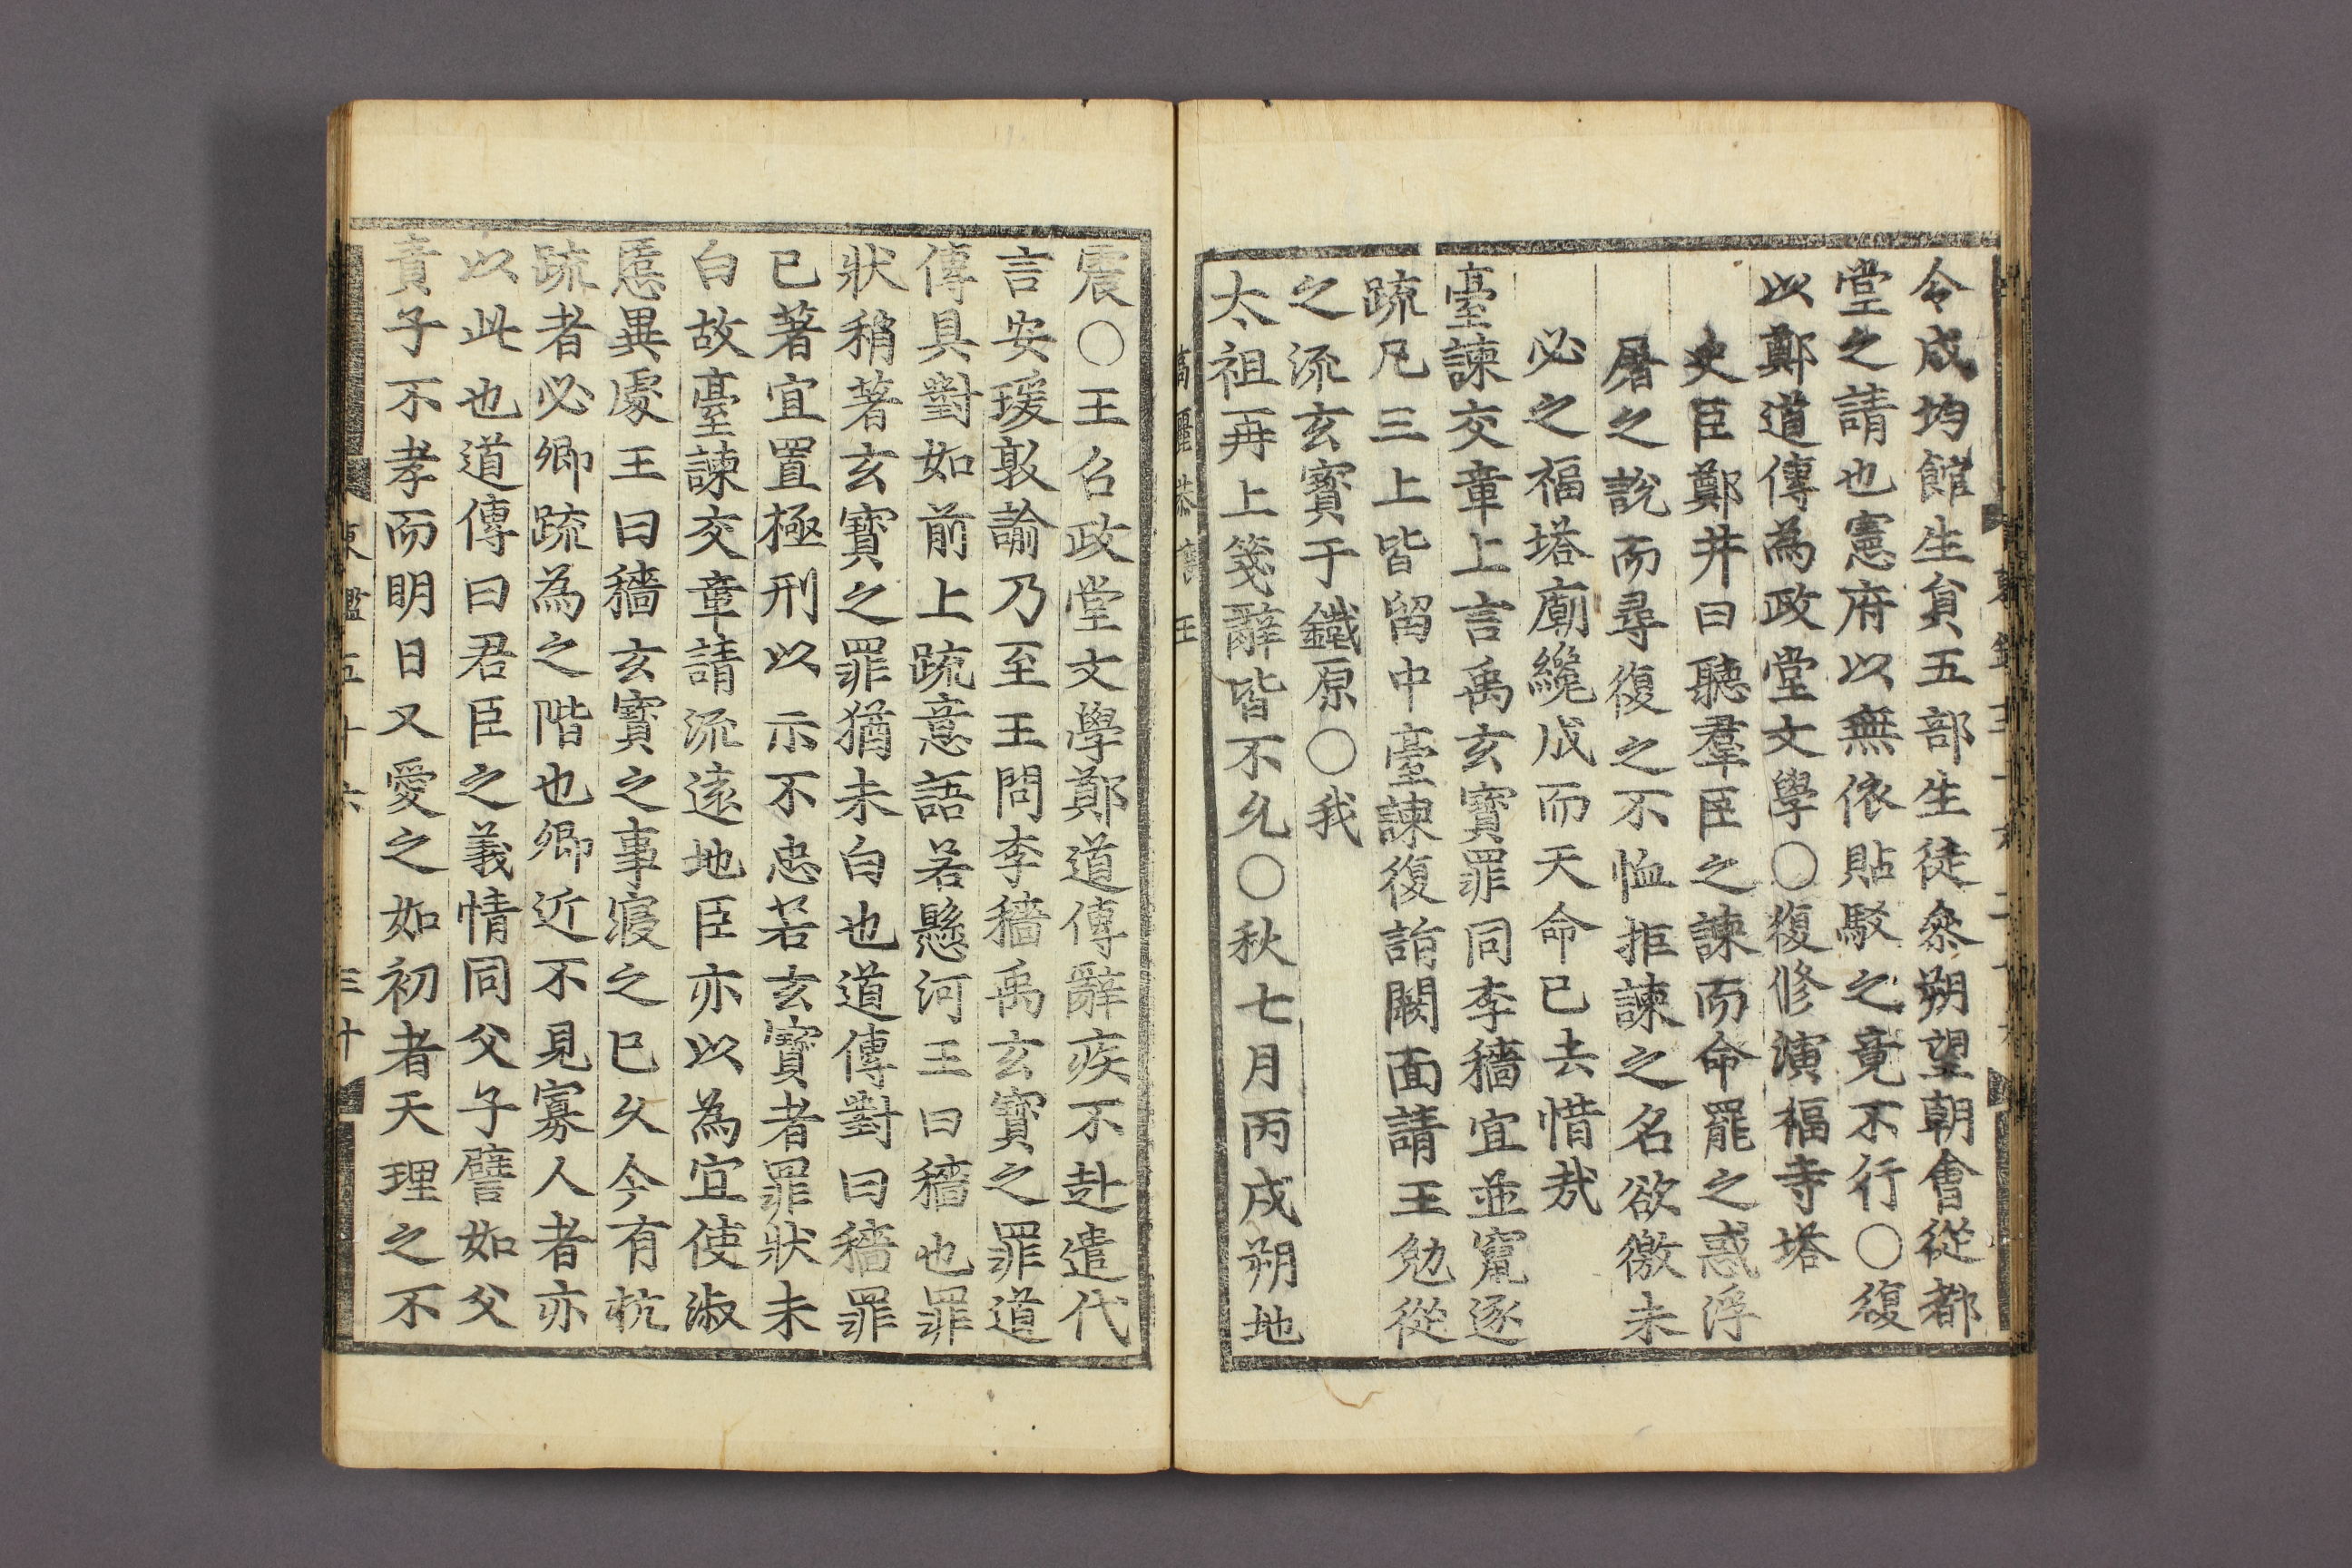 令成均館生負五部生徒叅朔望朝會從都
堂之請也憲府以無依貼駁之竟不行○復
以鄭道傳為政堂文學○復修演福寺塔
史臣鄭井曰聽羣臣之諫而命罷之惑浮
屠之說而尋復之不恤拒諫之名欲徼未
必之福塔廟纔成而天命已去惜哉
臺諫交章上言禹玄寶罪同李穡宜並竄逐
䟽凡三上皆留中臺諫復詣闕面請王勉從
之流玄寶于鐵原○我
太祖再上箋辭皆不允○秋七月丙戌朔地
高麗恭讓王
震○王召政堂文學鄭道傳辭疾不赴遣代
言安瑗敦諭乃至王問李穡禹玄寶之罪道
傳具對如前上䟽意語若懸河王曰穡也罪
狀稍著玄寶之罪猶未白也道傳對曰穡罪
已著宜置極刑以示不忠若玄寶者罪狀未
白故臺諫交章請流遠地臣亦以為宜使淑
慝異處王曰穡玄寶之事寢之已久今有抗
䟽者必卿䟽為之階也卿近不見寡人者亦
以此也道傳曰君臣之義情同父子譬如父
責子不孝而明日又愛之如初者天理之不
東鑑五十六 三十